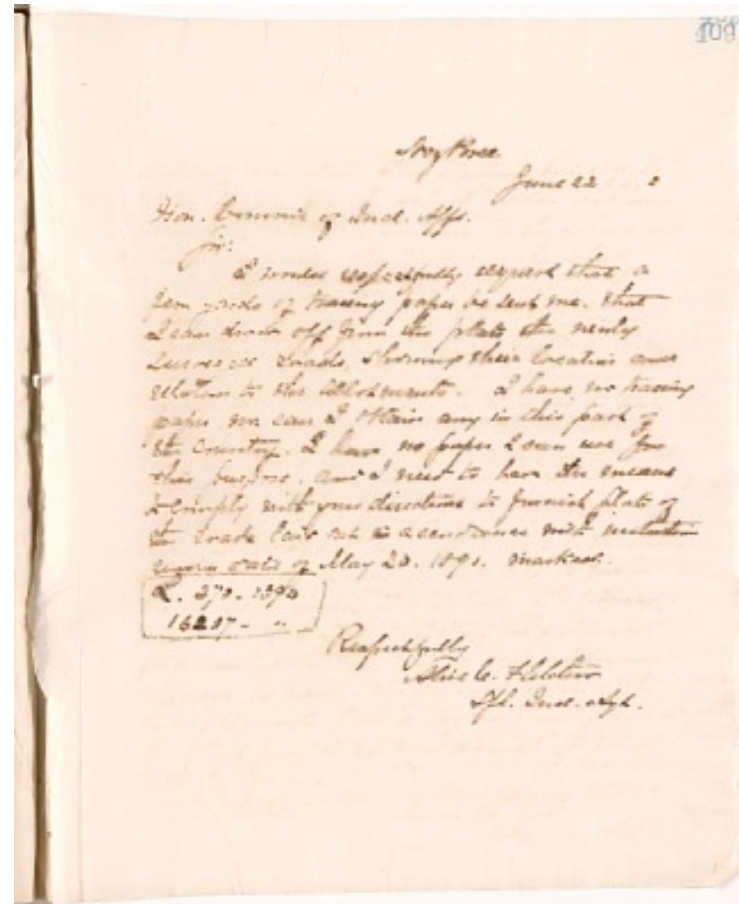 109
June 22
Hon. Commis of Ind. Affs.
Sir:
I would respectfully request that a
few yards of tracing paper be sent me, that
I can draw off from the plats the newly
surveyed roads, showing their location and
relation to the allotments. I have no tracing
paper nor can I obtain any in this part of
the Country. I have no paper I can use for
this purpose, and I need to have the means
to comply with your directions to furnish plats of
the roads laid out in accordance with instruction
under date of May 20. 1891. marked.
L. 370. 1890
16207 - "
Respectfully
Alice C. Fletcher
Spl. Ind. Agt.